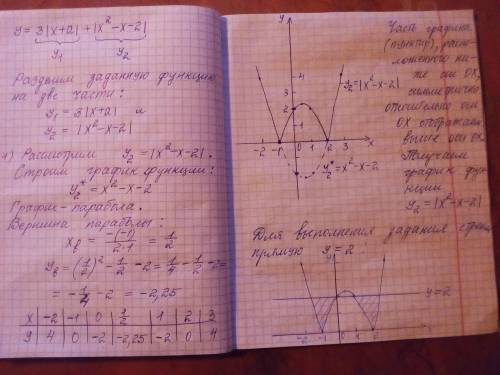 y = 3|x+a| + |x²-x-2|
y₁ y₂
Разделим заданную функцию
на две части:
y₁ = 3|x+a| и
y₂ = |x²-x-2|
1) Рассмотрим y₂ = |x²-x-2|.
Строим график функции:
y₂* = x²-x-2
График - парабола.
Вершина параболы:
xв = -(-1)/2·1 = 1/2
yв = (1/2)² - 1/2 - 2 = 1/4 - 1/2 - 2 =
= -1/4 - 2 = -2,25
x | -2 | -1 | 0 | 1/2 | 1 | 2 | 3
y | 4 | 0 | -2 | -2,25 | -2 | 0 | 4
y
4
y₂=|x²-x-2|
2
-2 -1 0 1 2 3 x
y₂*=x²-x-2
Часть графика
(пунктир), расп-
ложенного ни-
же оси OX,
симметрично
относительно оси
OX отображаем
выше оси OX.
Получаем
график фун-
кции
y₂ = |x²-x-2|
Для выполнения задания строим
прямую y = 2.
y
y=2
-1 0 2